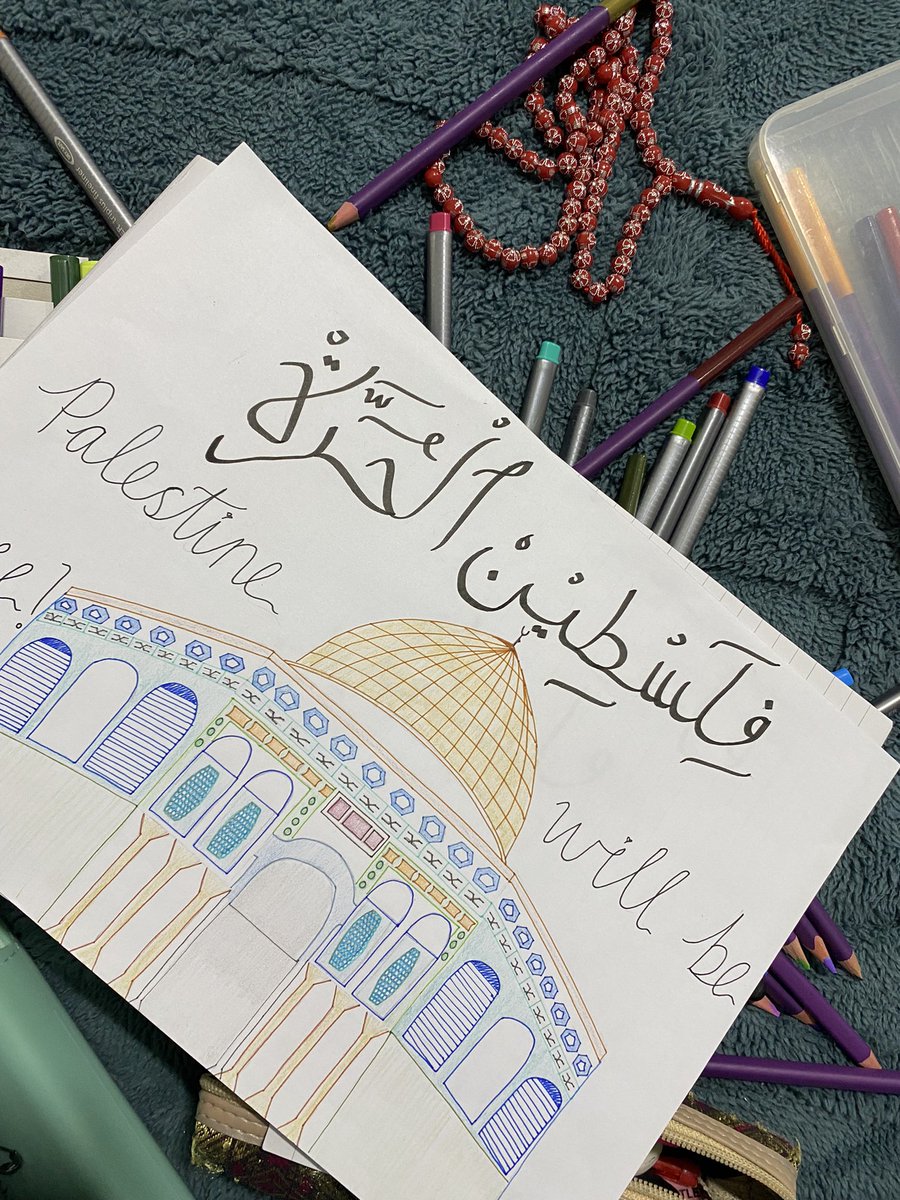 فِلَسْطِيْن الْحُرِّيَّةْ
Palestine
will be